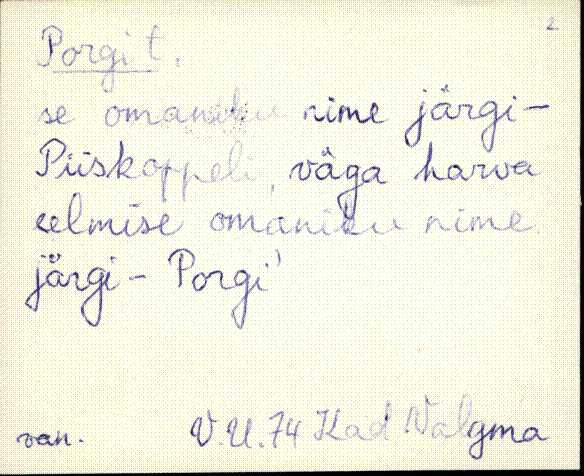 2
Porgi t.
se omaniku nime järgi-
Piiskoppeli, väga harva
eelmise omaniku nime
järgi- Porgi'
van. V.U. 74 Kad Valgma